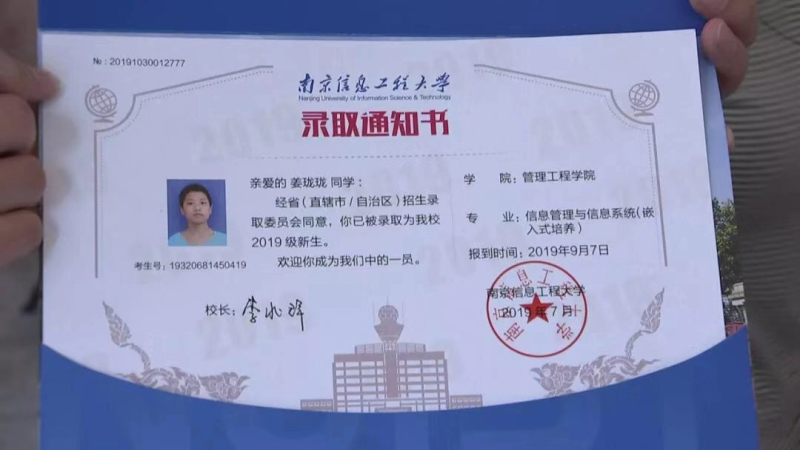 №：20191030012777
南京信息工程大学
Nanjing University of Information Science & Technology
录取通知书
亲爱的 姜珑珑 同学：
经省（直辖市/自治区）招生录
取委员会同意，你已被录取为我校
2019 级新生。
欢迎你成为我们中的一员。
考生号：19320681450419
校长：李北群
学 院：管理工程学院
专 业：信息管理与信息系统(嵌
入式培养）
报到时间：2019年9月7日
南京信息工程大学
2019年7月
南京信息工程大学